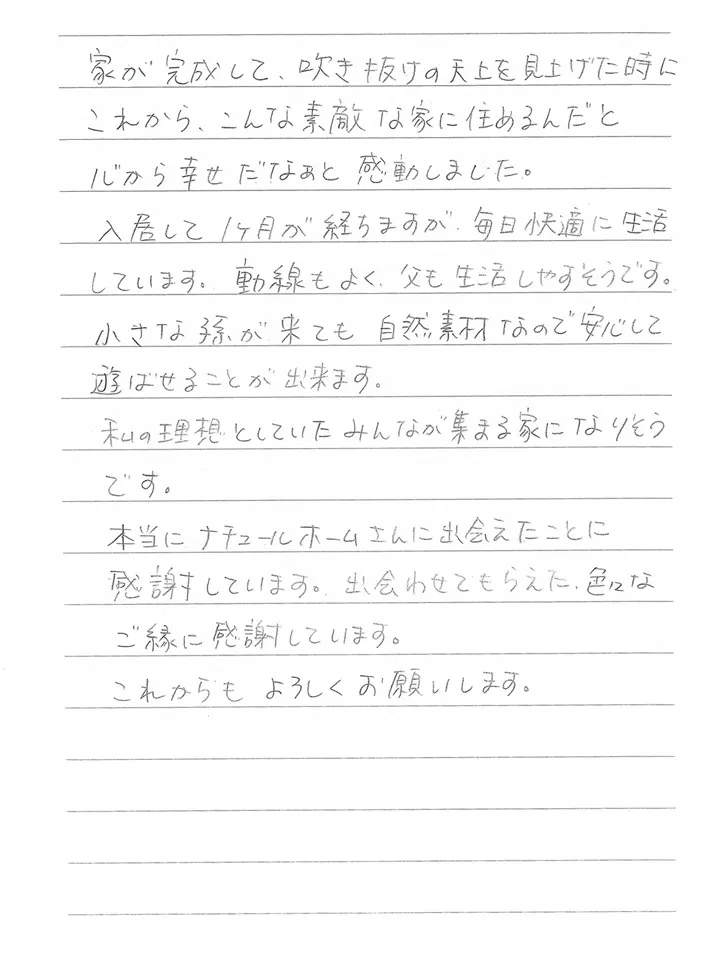 家が完成して、吹き抜けの天上を見上げた時に
これから、こんな素敵な家に住めるんだと
心から幸せだなぁと感動しました。
入居して1ヶ月が経ちますが、毎日快適に生活
しています。動線もよく、父も生活しやすそうです。
小さな孫が来ても自然素材なので安心して
遊ばせることが出来ます。
私の理想としていたみんなが集まる家になりそう
です。
本当にナチュールホームさんに出会えたことに
感謝しています。出会わせてもらえた、色々な
ご縁に感謝しています。
これからもよろしくお願いします。